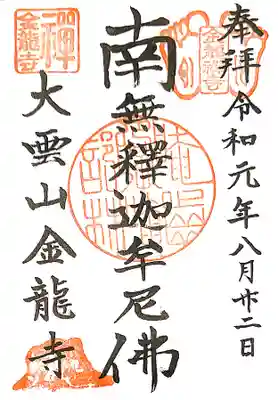 奉拝 令和元年八月廿二日
南無釋迦牟尼佛
大雲山金龍寺
禅
金龍寺
金龍禅寺